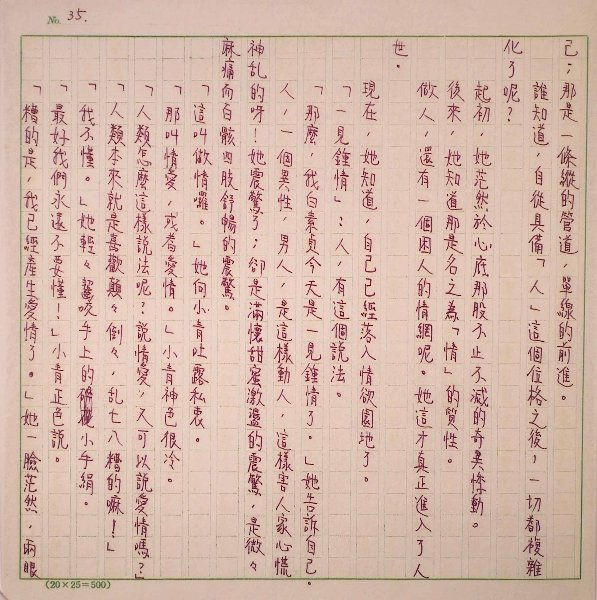 No. 35.
己；那是一條縱的管道，單線的前進。
誰知道，自從具備「人」這個位格之後，一切都複雜
化了呢？
起初，她茫然於心底那股不止不滅的奇異悸動。
後來，她知道那是名之為「情」的質性。
做人，還有一個困人的情網呢。她這才真正進入了人
世。
現在，她知道，自己已經落入情欲園地了。
「一見鍾情」？人，有這個說法。
「那麼，我白素貞今天是一見鍾情了。」她告訴自己。
人，一個異性，男人，是這樣動人，這樣害人家心慌
神乱的呀！她震驚了；卻是滿懷甜蜜激盪的震驚，是微々
麻痛向百骸四肢舒暢的震驚。
「這叫做情囉。」她向小青吐露私衷。
「那叫情愛，或者愛情。」小青神色很冷。
「人類怎麼這樣說法呢？說情愛，又可以說愛情嗎？」
「人類本來就是喜歡顛々倒々，乱七八糟的嘛！」
「我不懂。」她輕々齧咬手上的小手絹。
「最好我們永遠不要懂！」小青正色說。
「糟的是，我已經產生愛情了。」她一臉茫然，兩眼
(20×25=500)